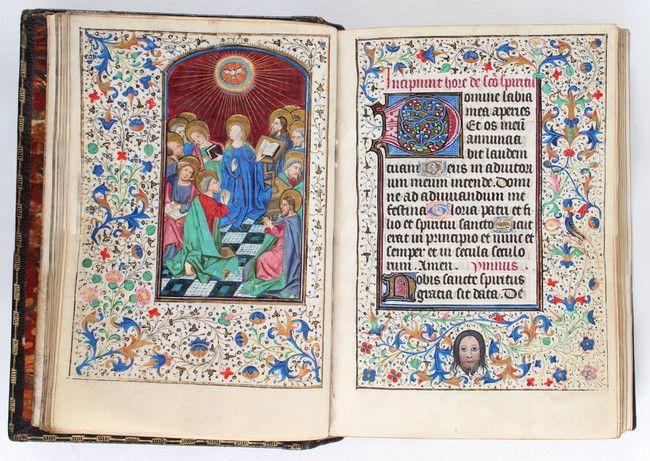 Incipiunt hore de sco spiritu
Domine labia
mea aperies
Et os meū
annuncia
bit laudem
tuam Deus in adiutori
um meum intende. Domi
ne ad adiuuandum me
festina Gloria patri et fi
lio et spiritui sancto Sicut
erat in principio et nunc et
semper et in secula seculo
rum. Amen. ymnus
Nobis sancte spiritus
gracia sit data. De